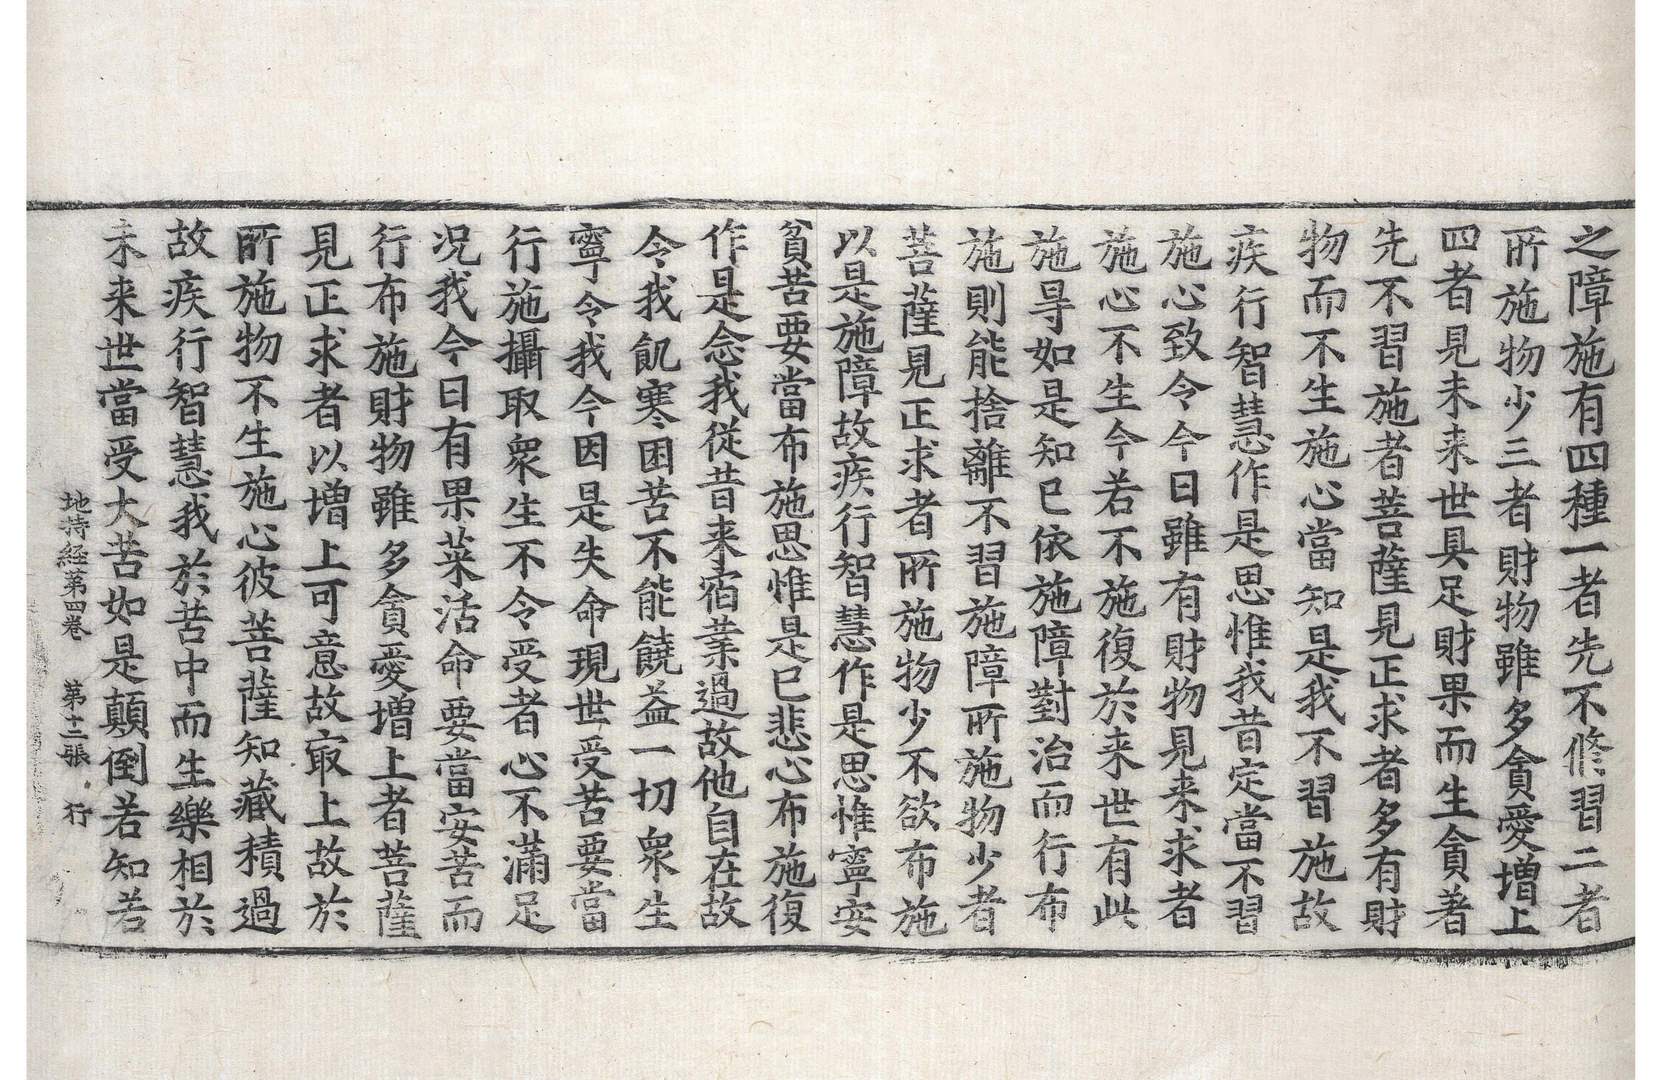 之障施有四種一者先不修習二者
所施物少三者財物雖多貪愛增上
四者見未来世具足財果而生貪著
先不習施者菩薩見正求者多有財
物而不生施心當知是我不習施故
疾行智慧作是思惟我昔定當不習
施心致令今日雖有財物見来求者
施心不生今若不施復於来世有此
施㝵如是知已依施障對治而行布
施則能捨離不習施障所施物少者
菩薩見正求者所施物少不欲布施
以是施障故疾行智慧作是思惟寧安
貧苦要當布施思惟是已悲心布施復
作是念我從昔来宿業過故他自在故
令我飢寒困苦不能饒益一切衆生
寧令我今因是失命現世受苦要當
行施攝取衆生不令受者心不滿足
况我今日有果菜活命要當安苦而
行布施財物雖多貪愛增上者菩薩
見正求者以增上可意故㝡上故於
所施物不生施心彼菩薩知藏積過
故疾行智慧我於苦中而生樂相於
未来世當受大苦如是顛倒若知若
地持經第四卷 第十二張 行